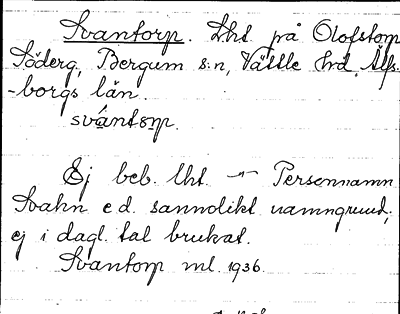 Svantorp. Lht på Olofstorp
Söderg, Bergum s:n, Vättle hrd, Älfs-
-borgs län.
svántɷrp.
Ej beb. lht. — Personnamn
Svahn e.d. sannolikt namngrund,
ej i dagl. tal brukat.
Svantorp ml. 1936.